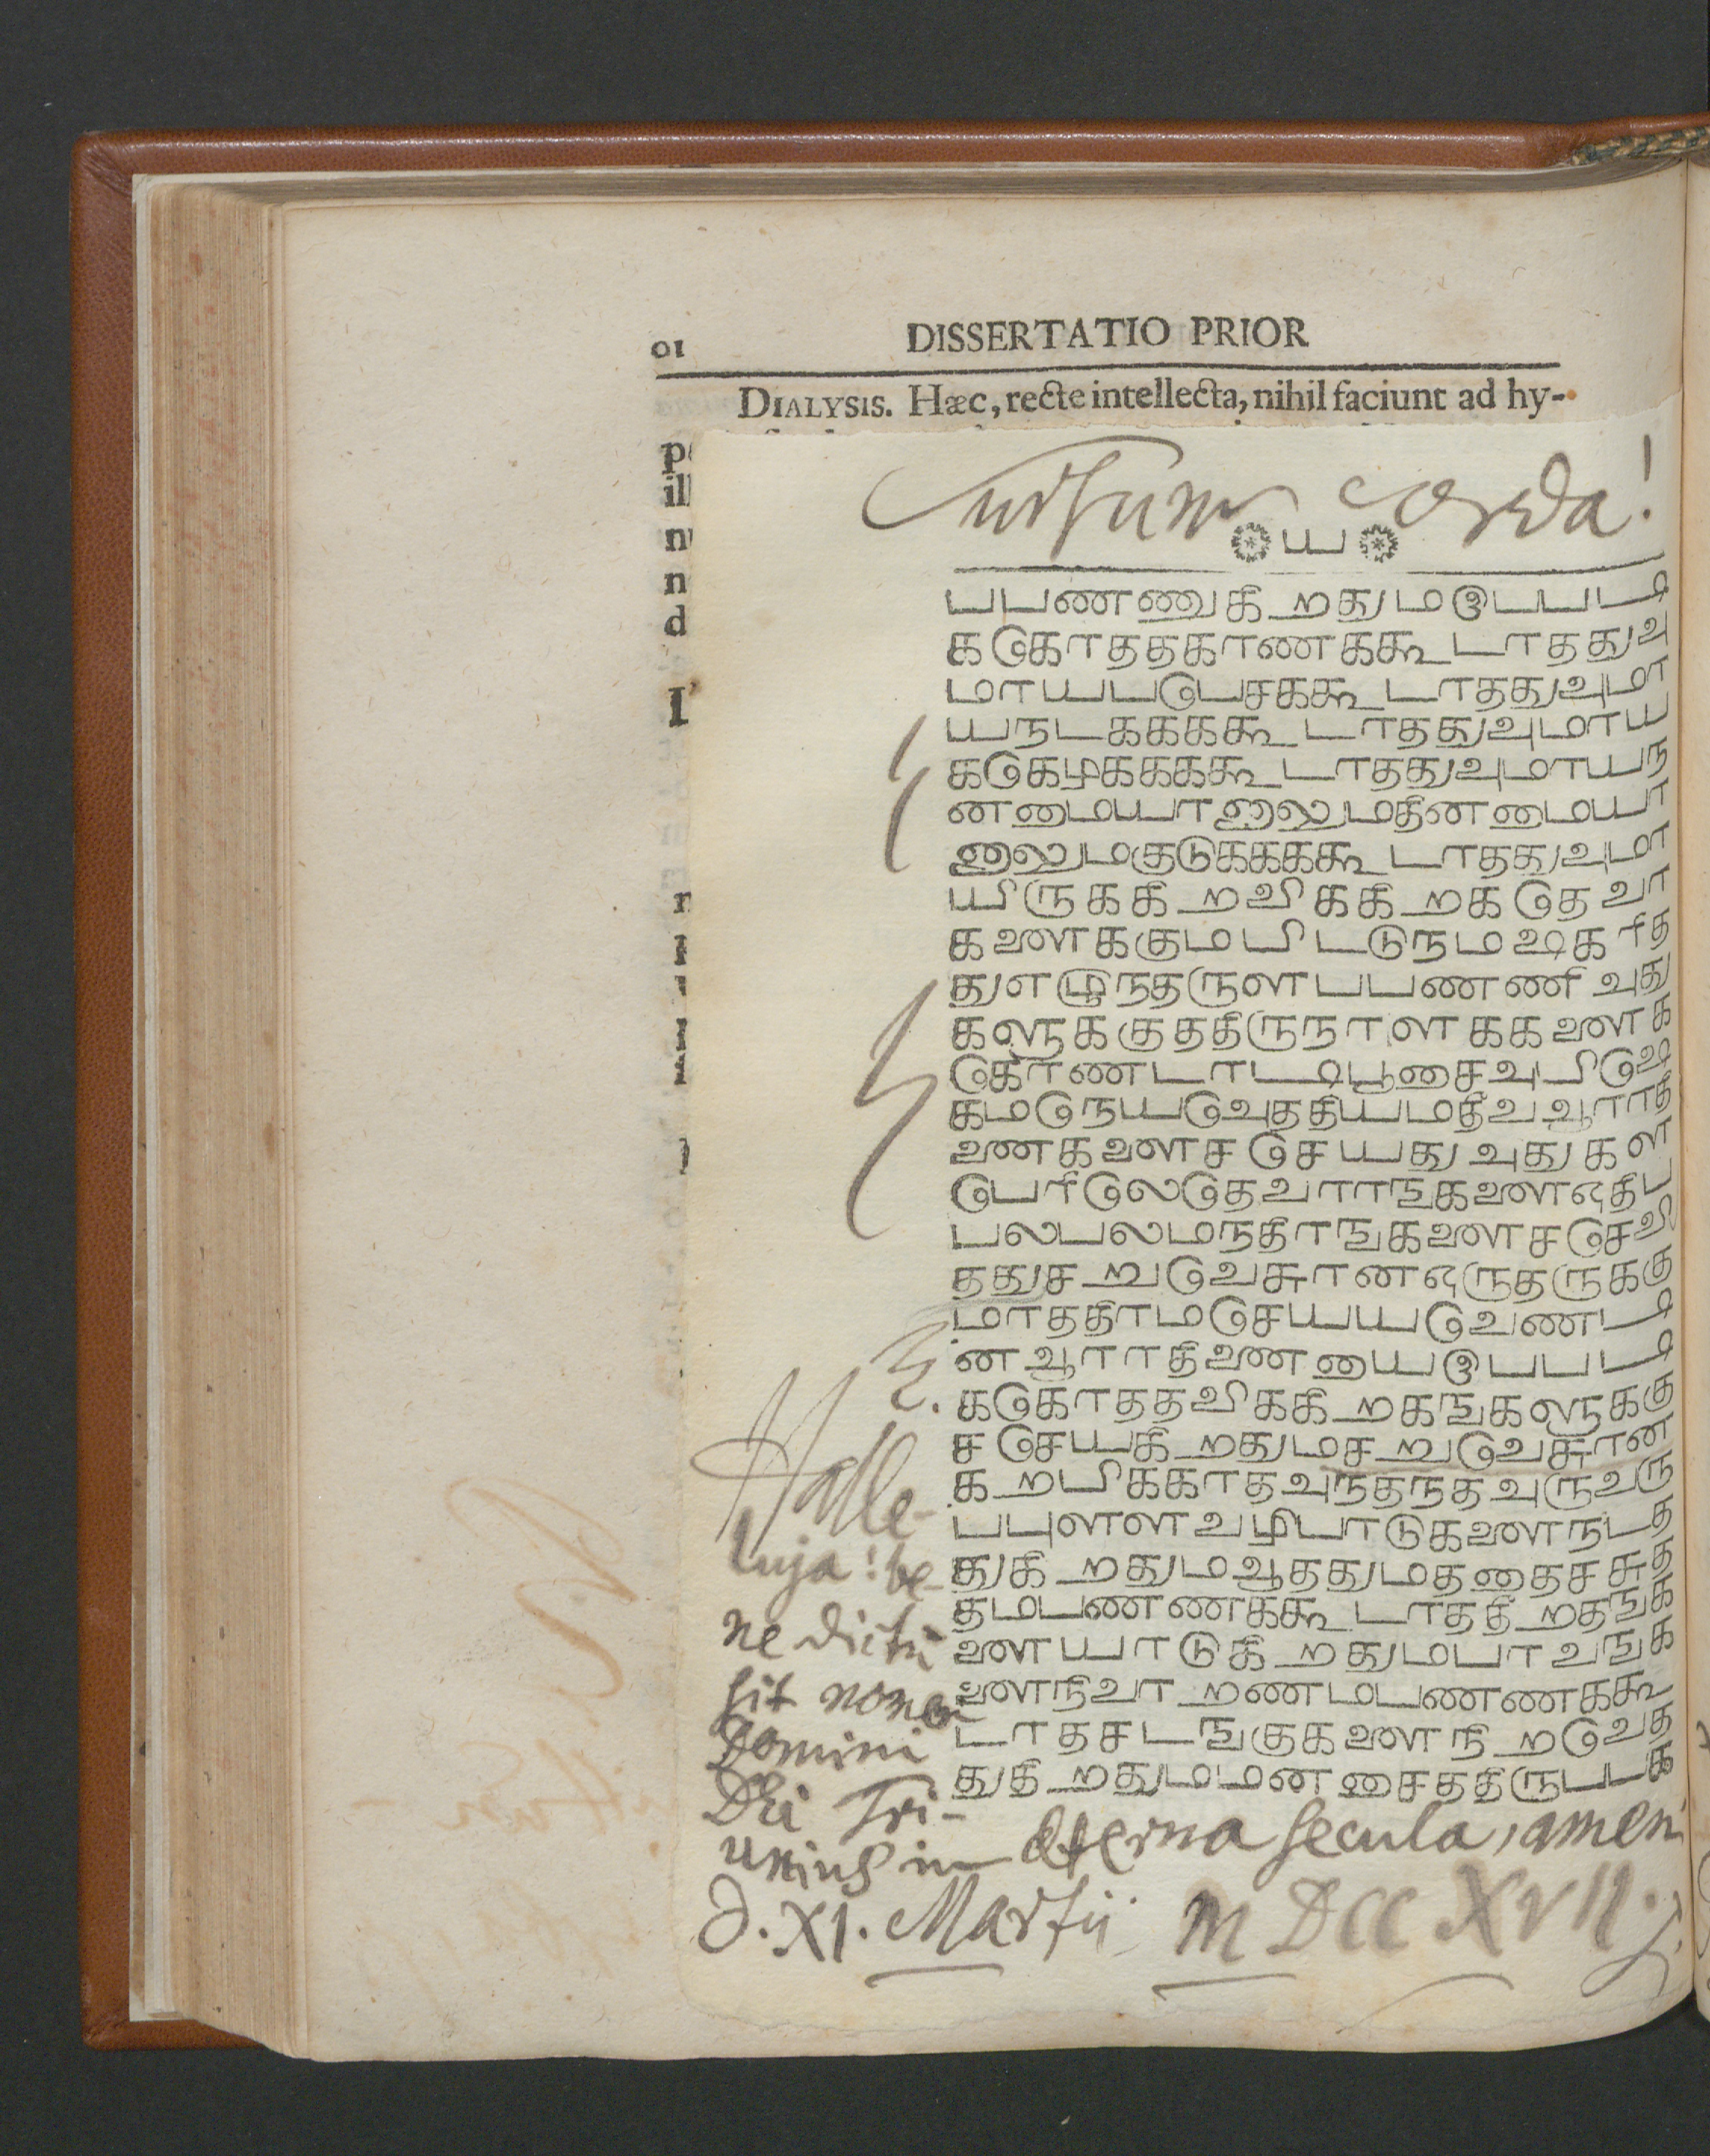 01 DISSERTATIO PRIOR
DIALYSIS. Hæc, recte intellecta, nihil faciunt ad hy-
Sursum corda!
ய
பபணணுகிறதுமஒபபடி
ககொததகாணககூடாததுவு
மாயபபெசககூடாததுவுமா
யநடககககூடாததுவுமாய
ககெழககககூடாததுவுமாயந
னமையானாலுமதினமையா
னாலுமகுடுககககூடாததுவுமா
யிருககிறவிககிறகதெவா
களைககுமபிடடுநமஷகரித
துஎழுநதருளபபணணிஅது
களுககுததிருநாளககளைக
கொணடாடிபூசைஅபிஷெ
கமநெயவெததியமதிவஆராதி
னைகளைசசெயதுஅதுகள
பெரிலெதெவாரஙகளைஒதிப
பலபலமநதிரஙகளைசசெவி
ததுசறுவெசுரனஒருதருககு
மாததிரமசெயயவெணடி
னஆராதினையைஒபபடி
ககொததவிககிறகஙகளுககு
சசெயகிறதுமசறுவெசுரன
கறபிககாதஅநதநதஅருவரு
பபுளளவழிபாடுகளைநடத
துகிறதுமஆததுமததைசசுத
தமபணணககூடாததிறதஙக
ளையாடுகிறதுமபாவஙக
ளைநிவாறணமபணணககூ
டாதசடஙகுகளைநிறவெத
துகிறதுமமனசைததிருபபக
Halle-
luja! be-
ne dictū
sit nomen
Domini
DEi Tri-
unius in æterna secula, amen
d. XI. Martii MDCCXVII.